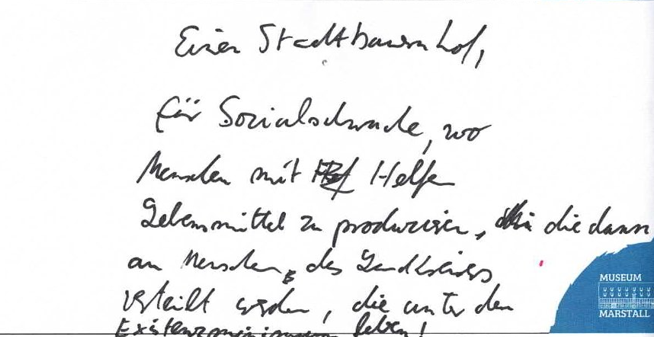 Einen Stadtbauernhof,
für Sozialschwache, wo
Menschen mit Helfen
Lebensmittel zu produzieren, die dann
an Menschen, des Landkreises
verteilt werden, die unter dem
Existenzminimum leben!
MUSEUM
MARSTALL